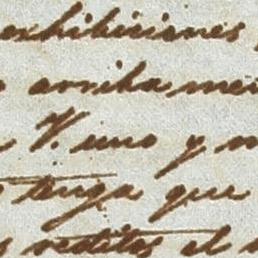 exhibiciones
arriba men
V. uno y m
tenga que
reditos el